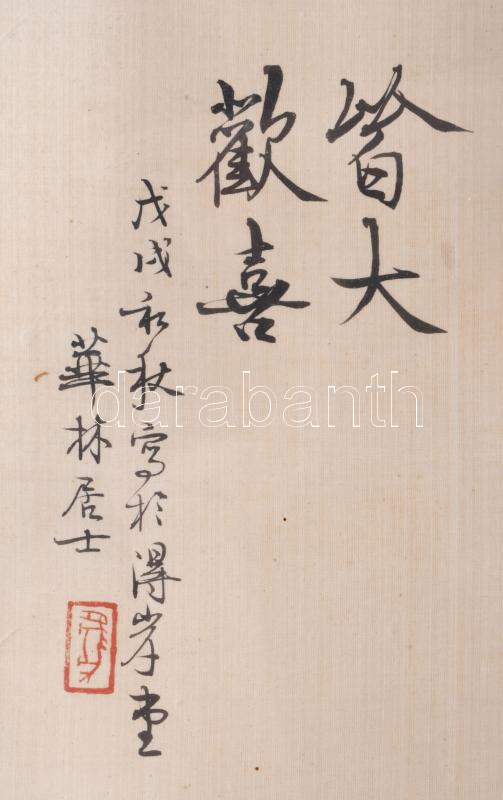 皆大
歡喜
戊戌初秋寫於得岸堂
華林居士
darabanth